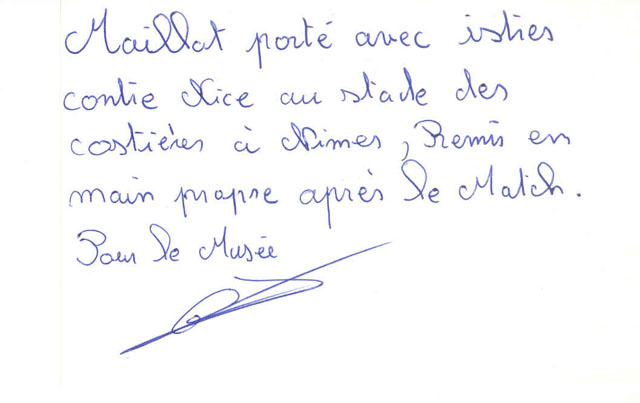 Maillot porté avec istres
contre Nice au stade des
costières à Nimes, Remis en
main propre après le Match.
Pour le Musée